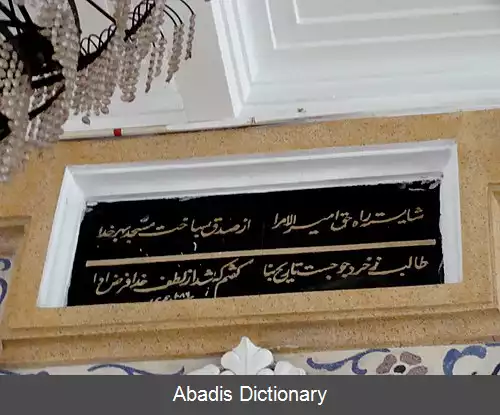 شایسته راه حق امیر الامرا از صدق بساخت مسجد بهر خدا
طالب ز خرد چو جست تاریخ بنا گفتم که شد از لطف خدا فرض ادا
Abadis Dictionary